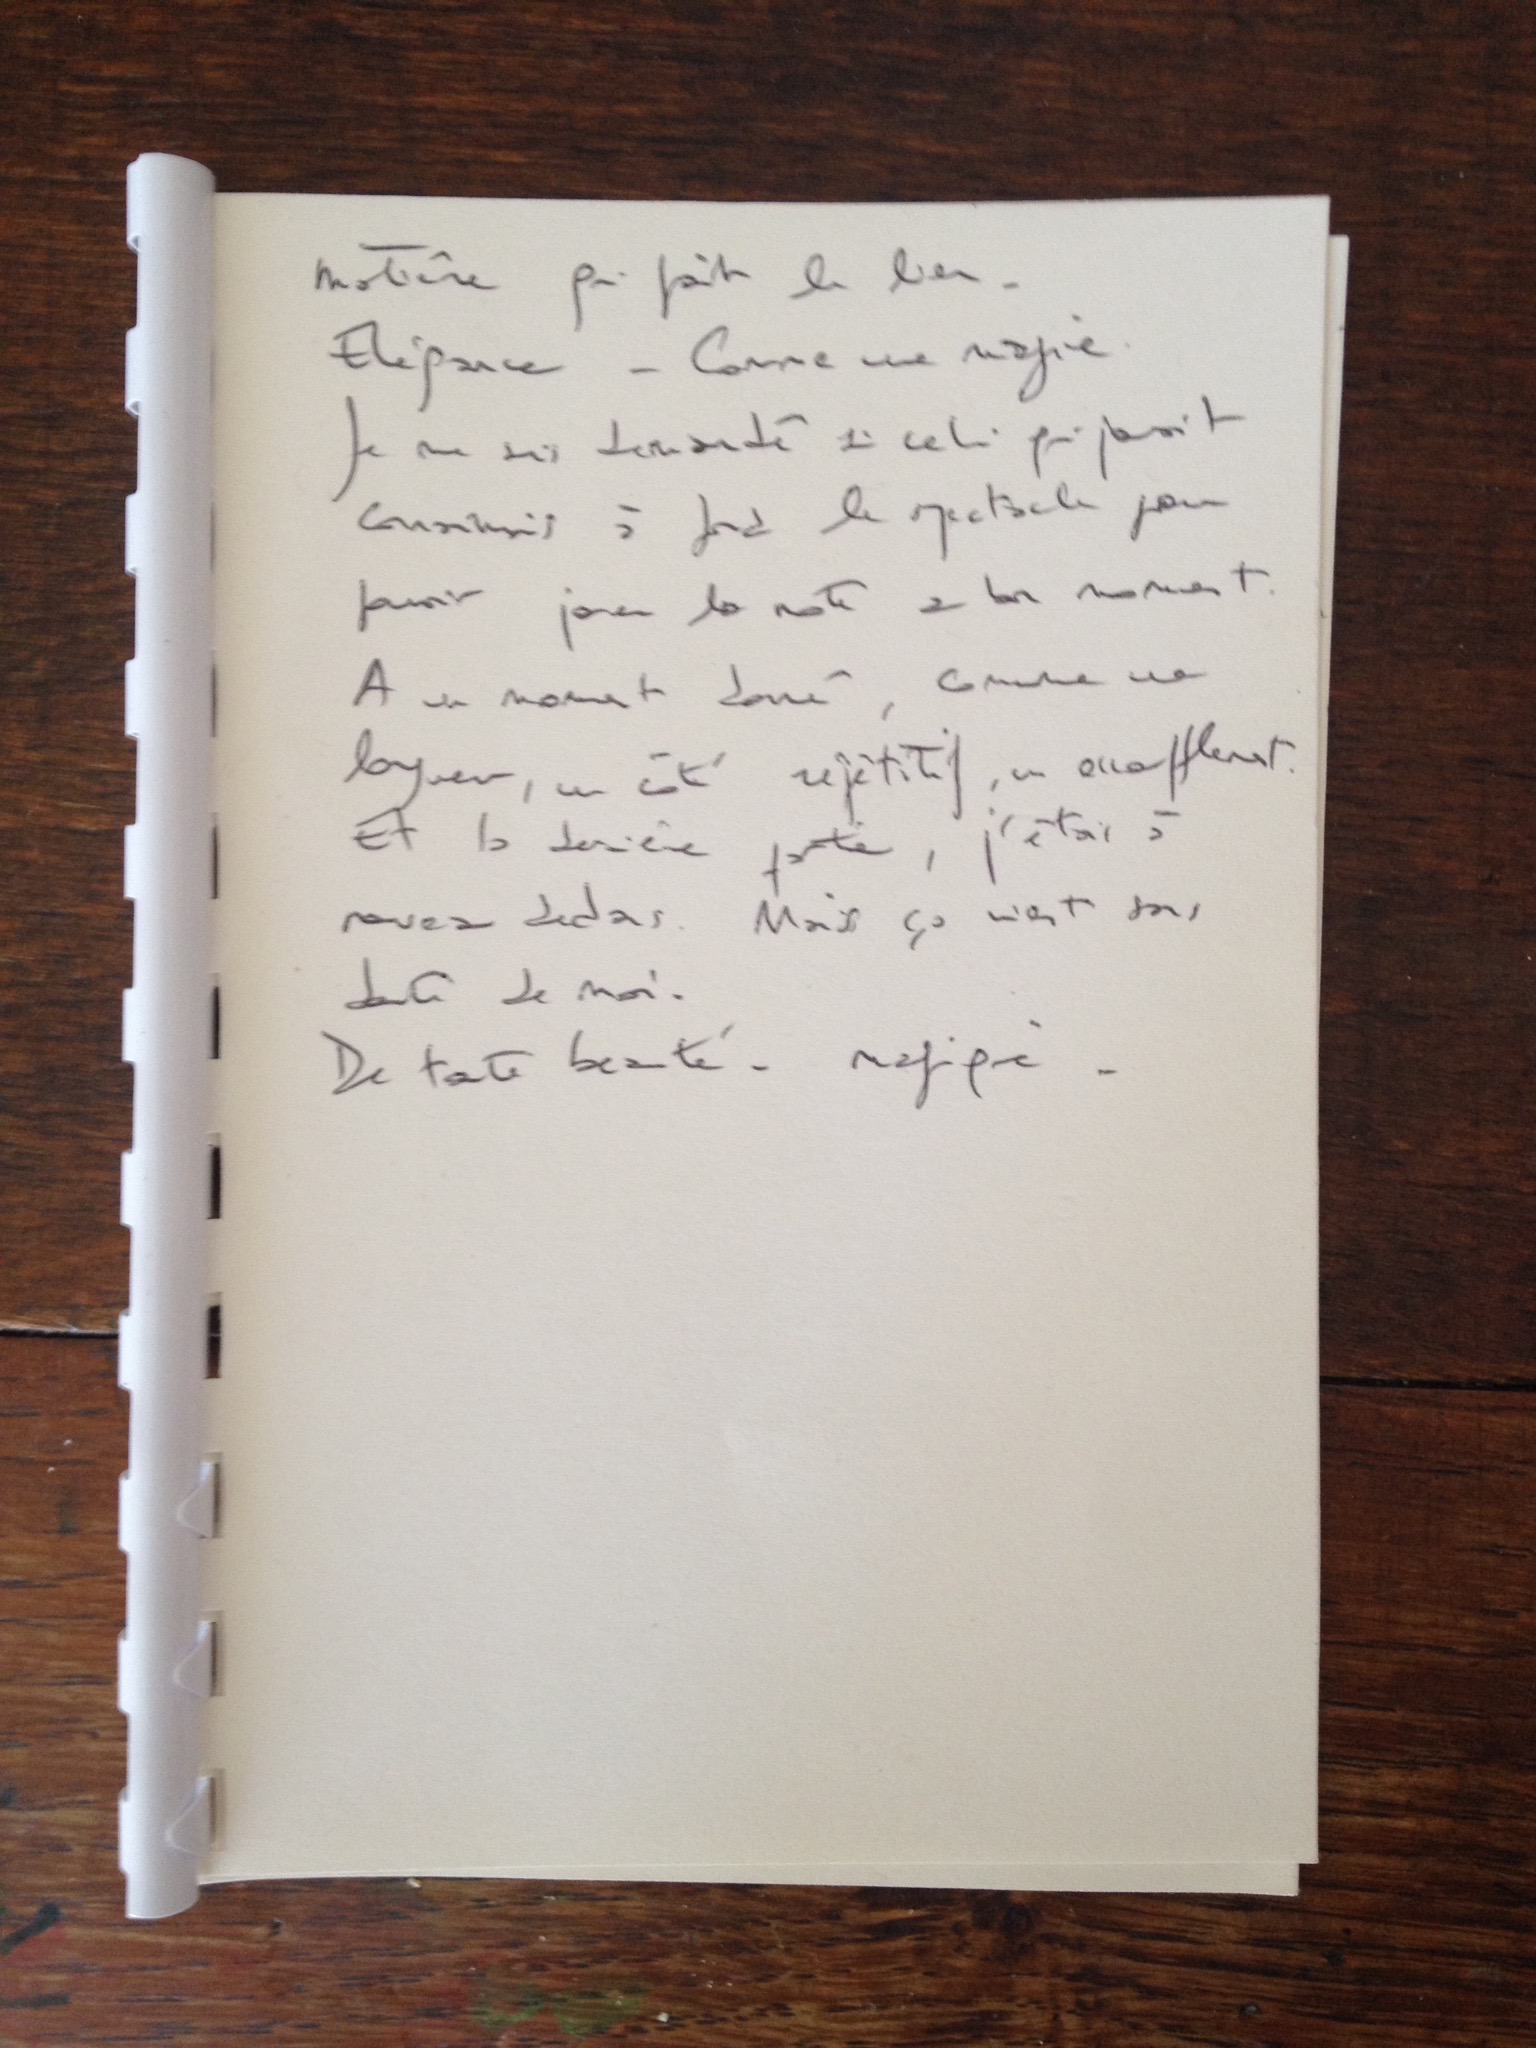 matière qui fait le lien -
Elégance - Comme une magie.
Je me suis demandé si celui qui jouait
connaissais à fond le spectacle pour
pouvoir jouer la note au bon moment.
A un moment donné, comme une
longueur, un côté répétitif, un essoufflement.
Et la dernière partie, j'étais à
nouveau dedans. Mais ça vient sans
doute de moi.
De toute beauté - magique -